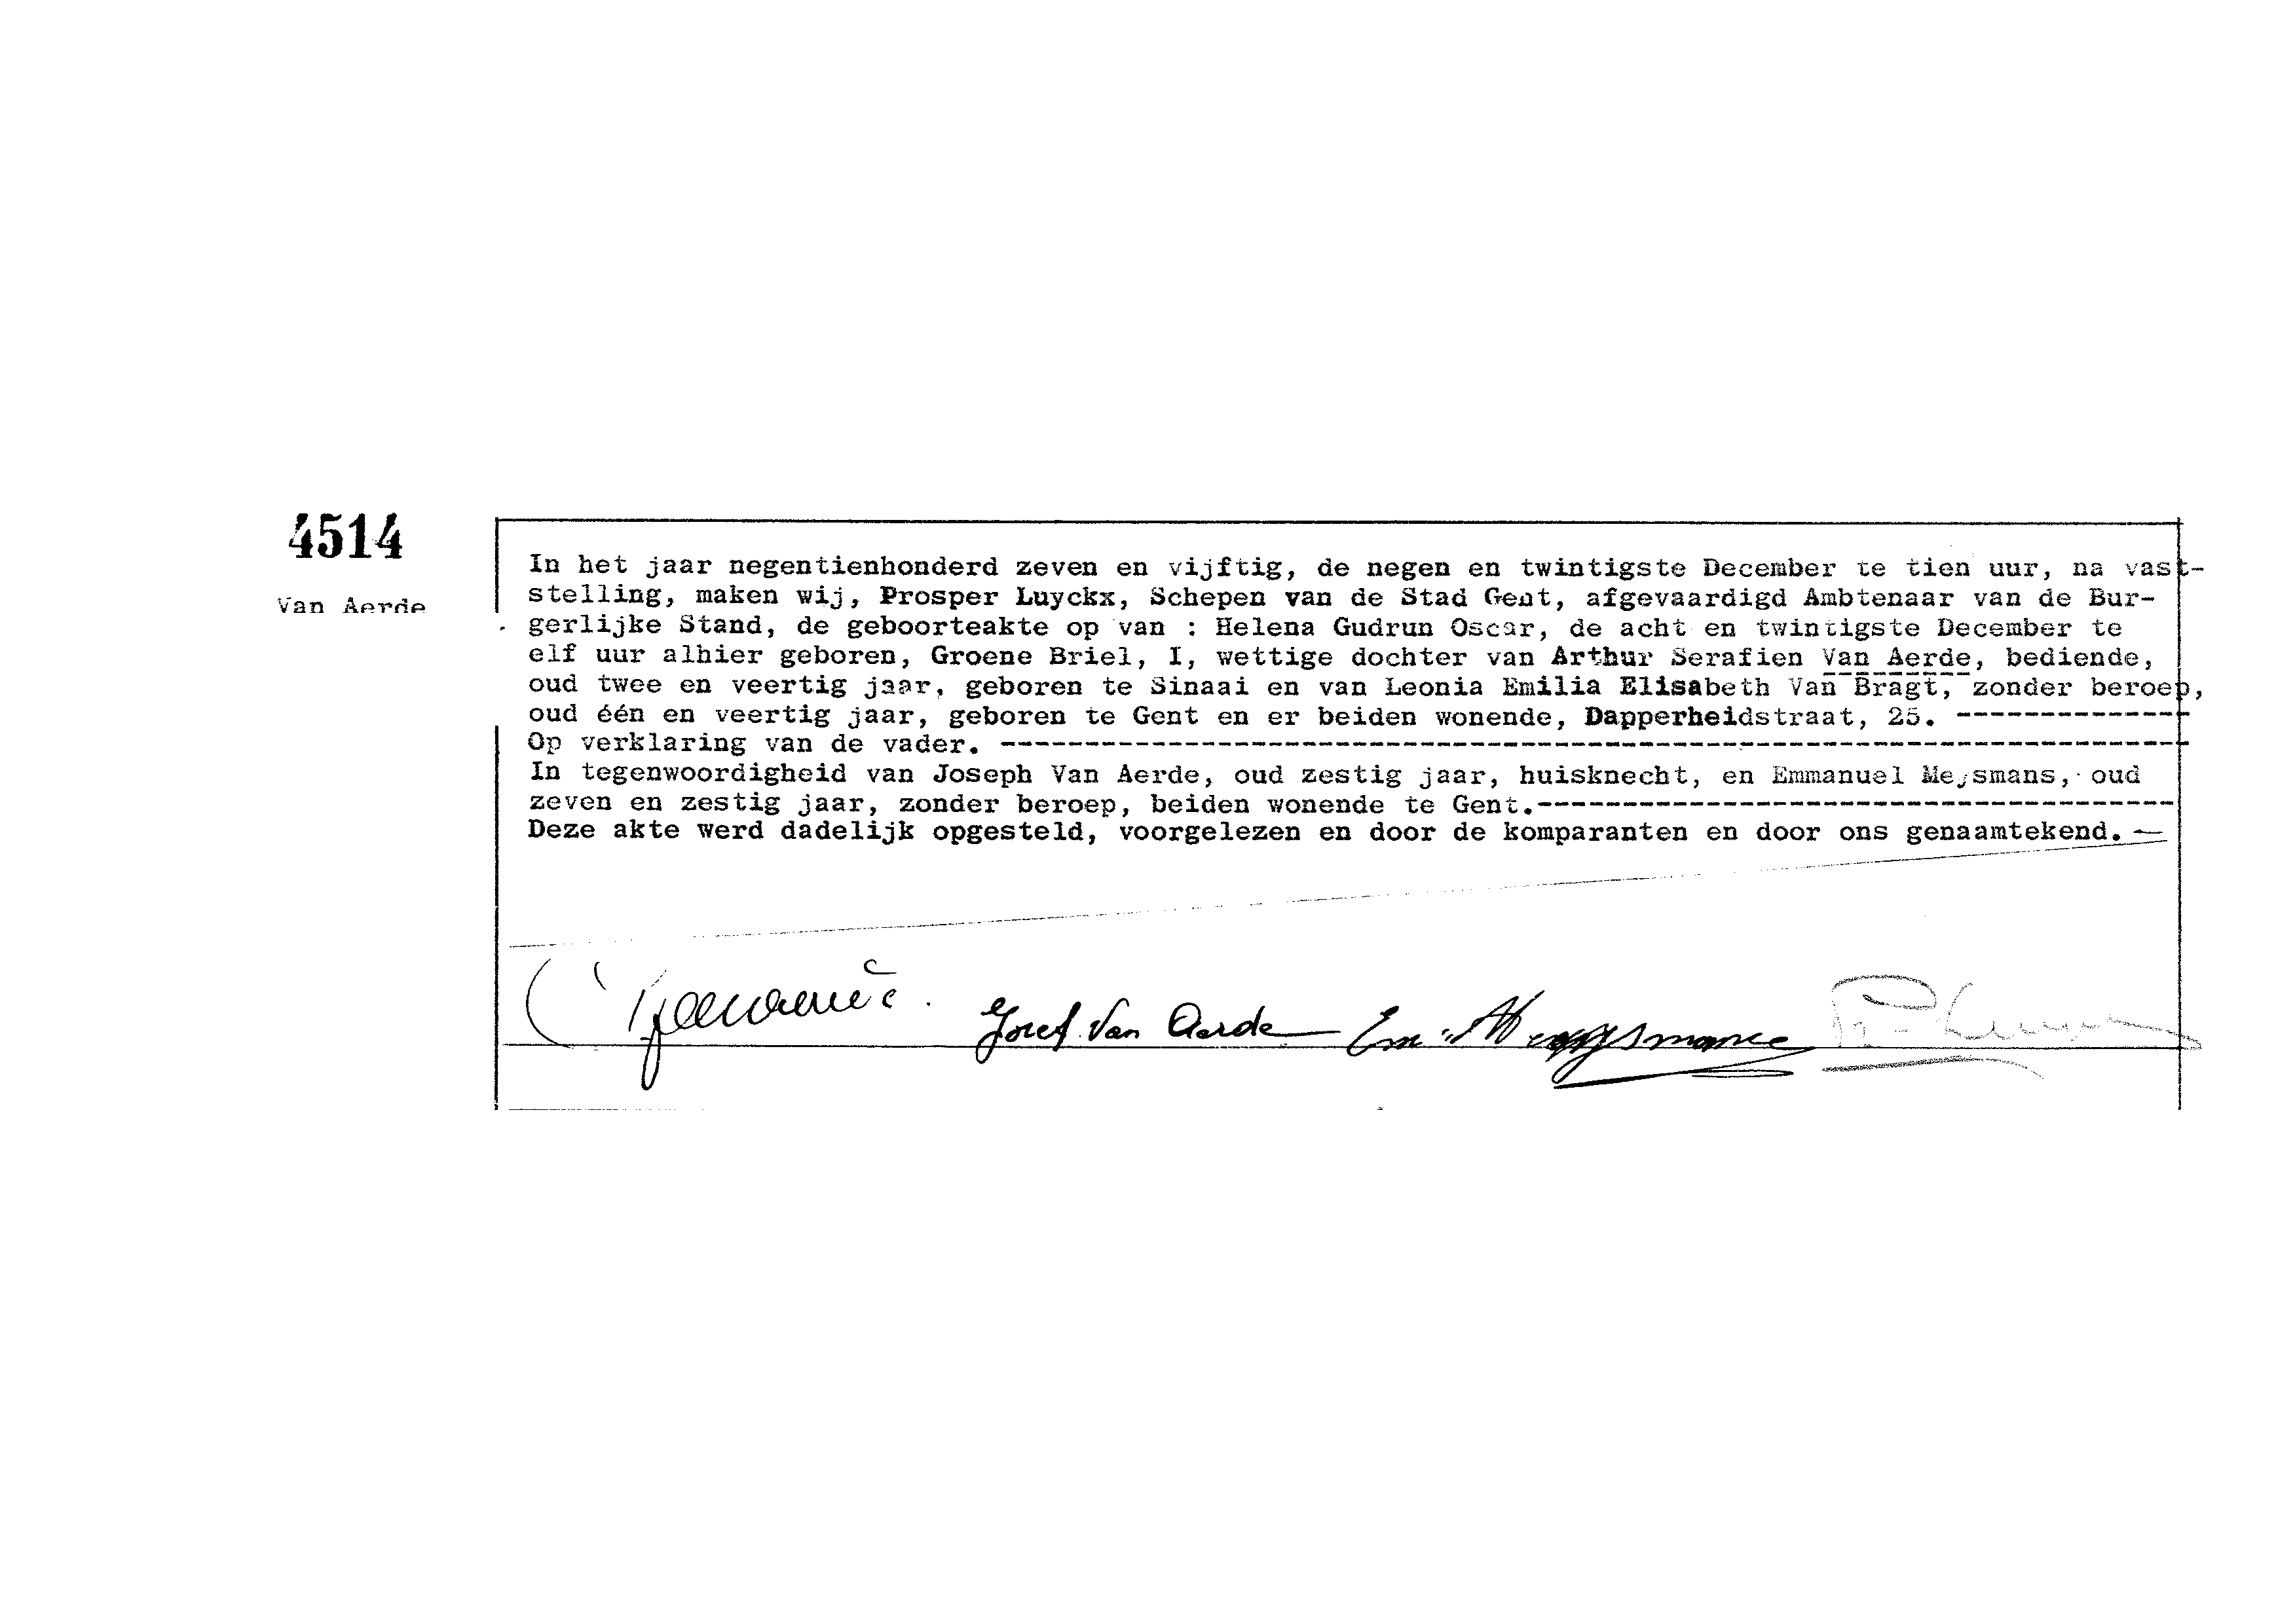 4514
Van Aerde
In het jaar negentienhonderd zeven en vijftig, de negen en twintigste December te tien uur, na vast-
stelling, maken wij, Prosper Luyckx, Schepen van de Stad Gent, afgevaardigd Ambtenaar van de Bur-
gerlijke Stand, de geboorteakte op van : Helena Gudrun Oscar, de acht en twintigste December te
elf uur alhier geboren, Groene Briel, I, wettige dochter van Arthur Serafien Van Aerde, bediende,
oud twee en veertig jaar, geboren te Sinaai en van Leonia Emilia Elisabeth Van Bragt, zonder beroep,
oud één en veertig jaar, geboren te Gent en er beiden wonende, Dapperheidstraat, 25. --------------
Op verklaring van de vader. -----------------------------------------------------------------------
In tegenwoordigheid van Joseph Van Aerde, oud zestig jaar, huisknecht, en Emmanuel Meysmans, oud
zeven en zestig jaar, zonder beroep, beiden wonende te Gent.--------------------------------------
Deze akte werd dadelijk opgesteld, voorgelezen en door de komparanten en door ons genaamtekend. —
Josef Van Aerde Em.